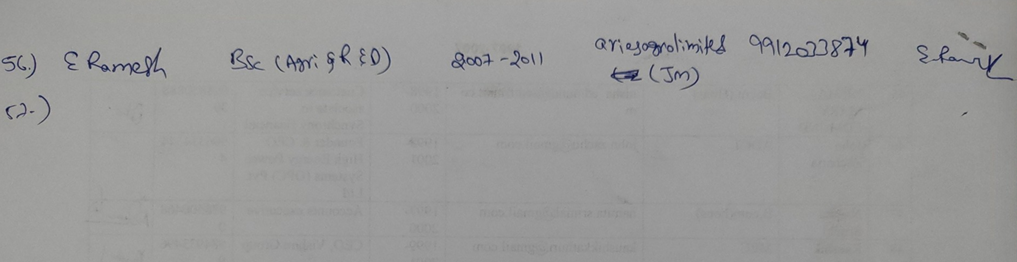 56) E Ramesh BSc (Agri & R &D) 2007-2011 ariesagrolimited 9912033874
(Jm)
57.)